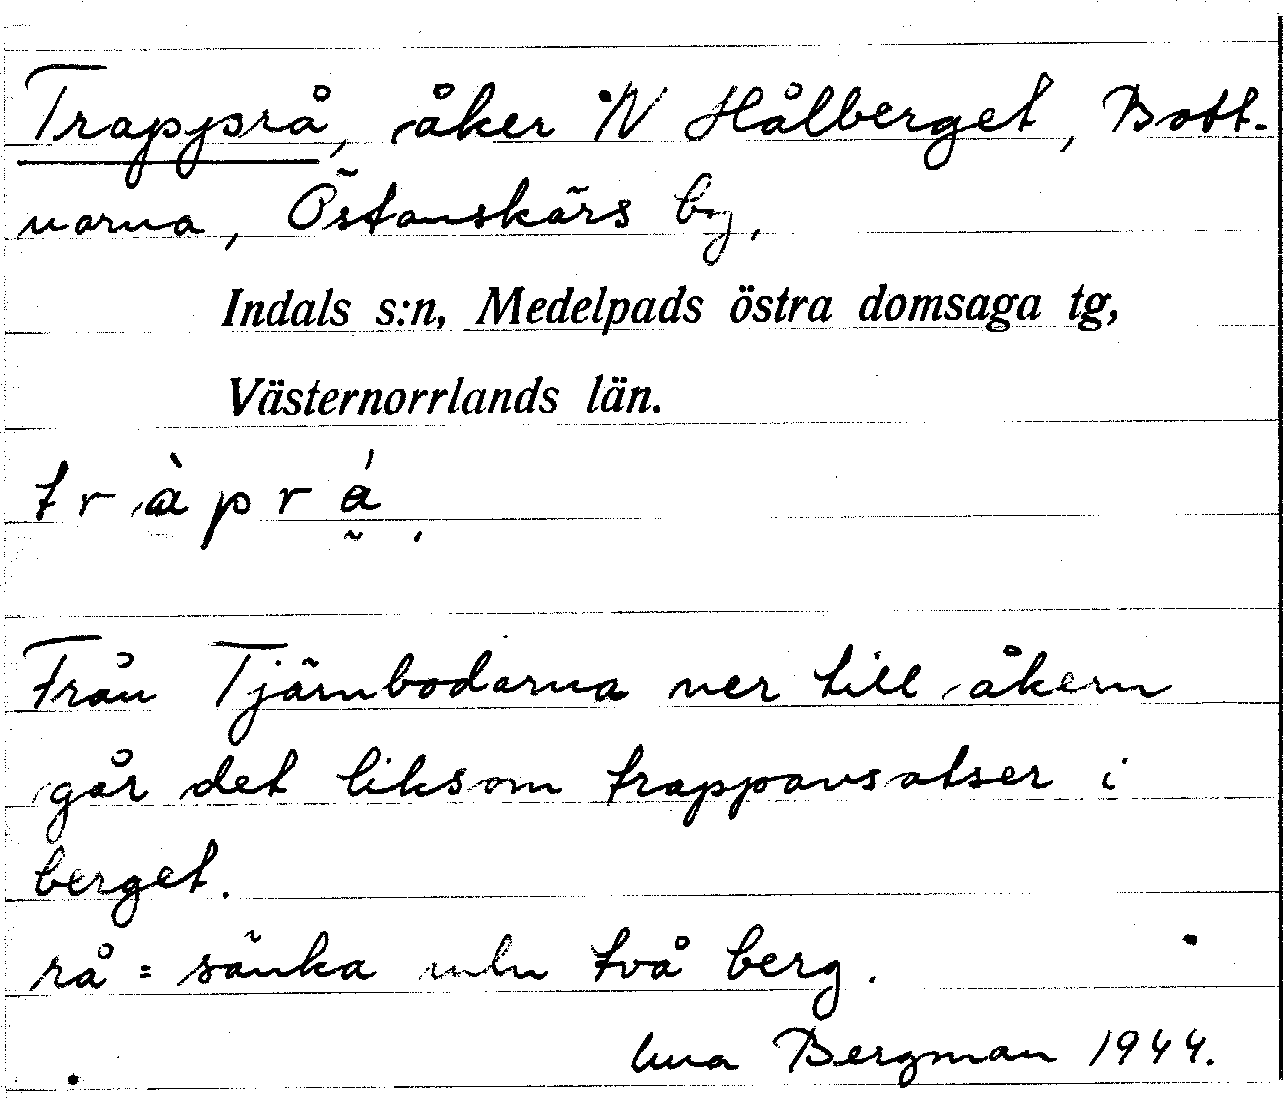 Trapprå, åker N Hålberget, Bott-
narna, Östanskärs by,
Indals s:n, Medelpads östra domsaga tg,
Västernorrlands län.
tràprá̰.
Från Tjärnbodarna ner till åkern
går det liksom trappavsatser i
berget.
rå = sänka mln två berg.
Bergman 1944.